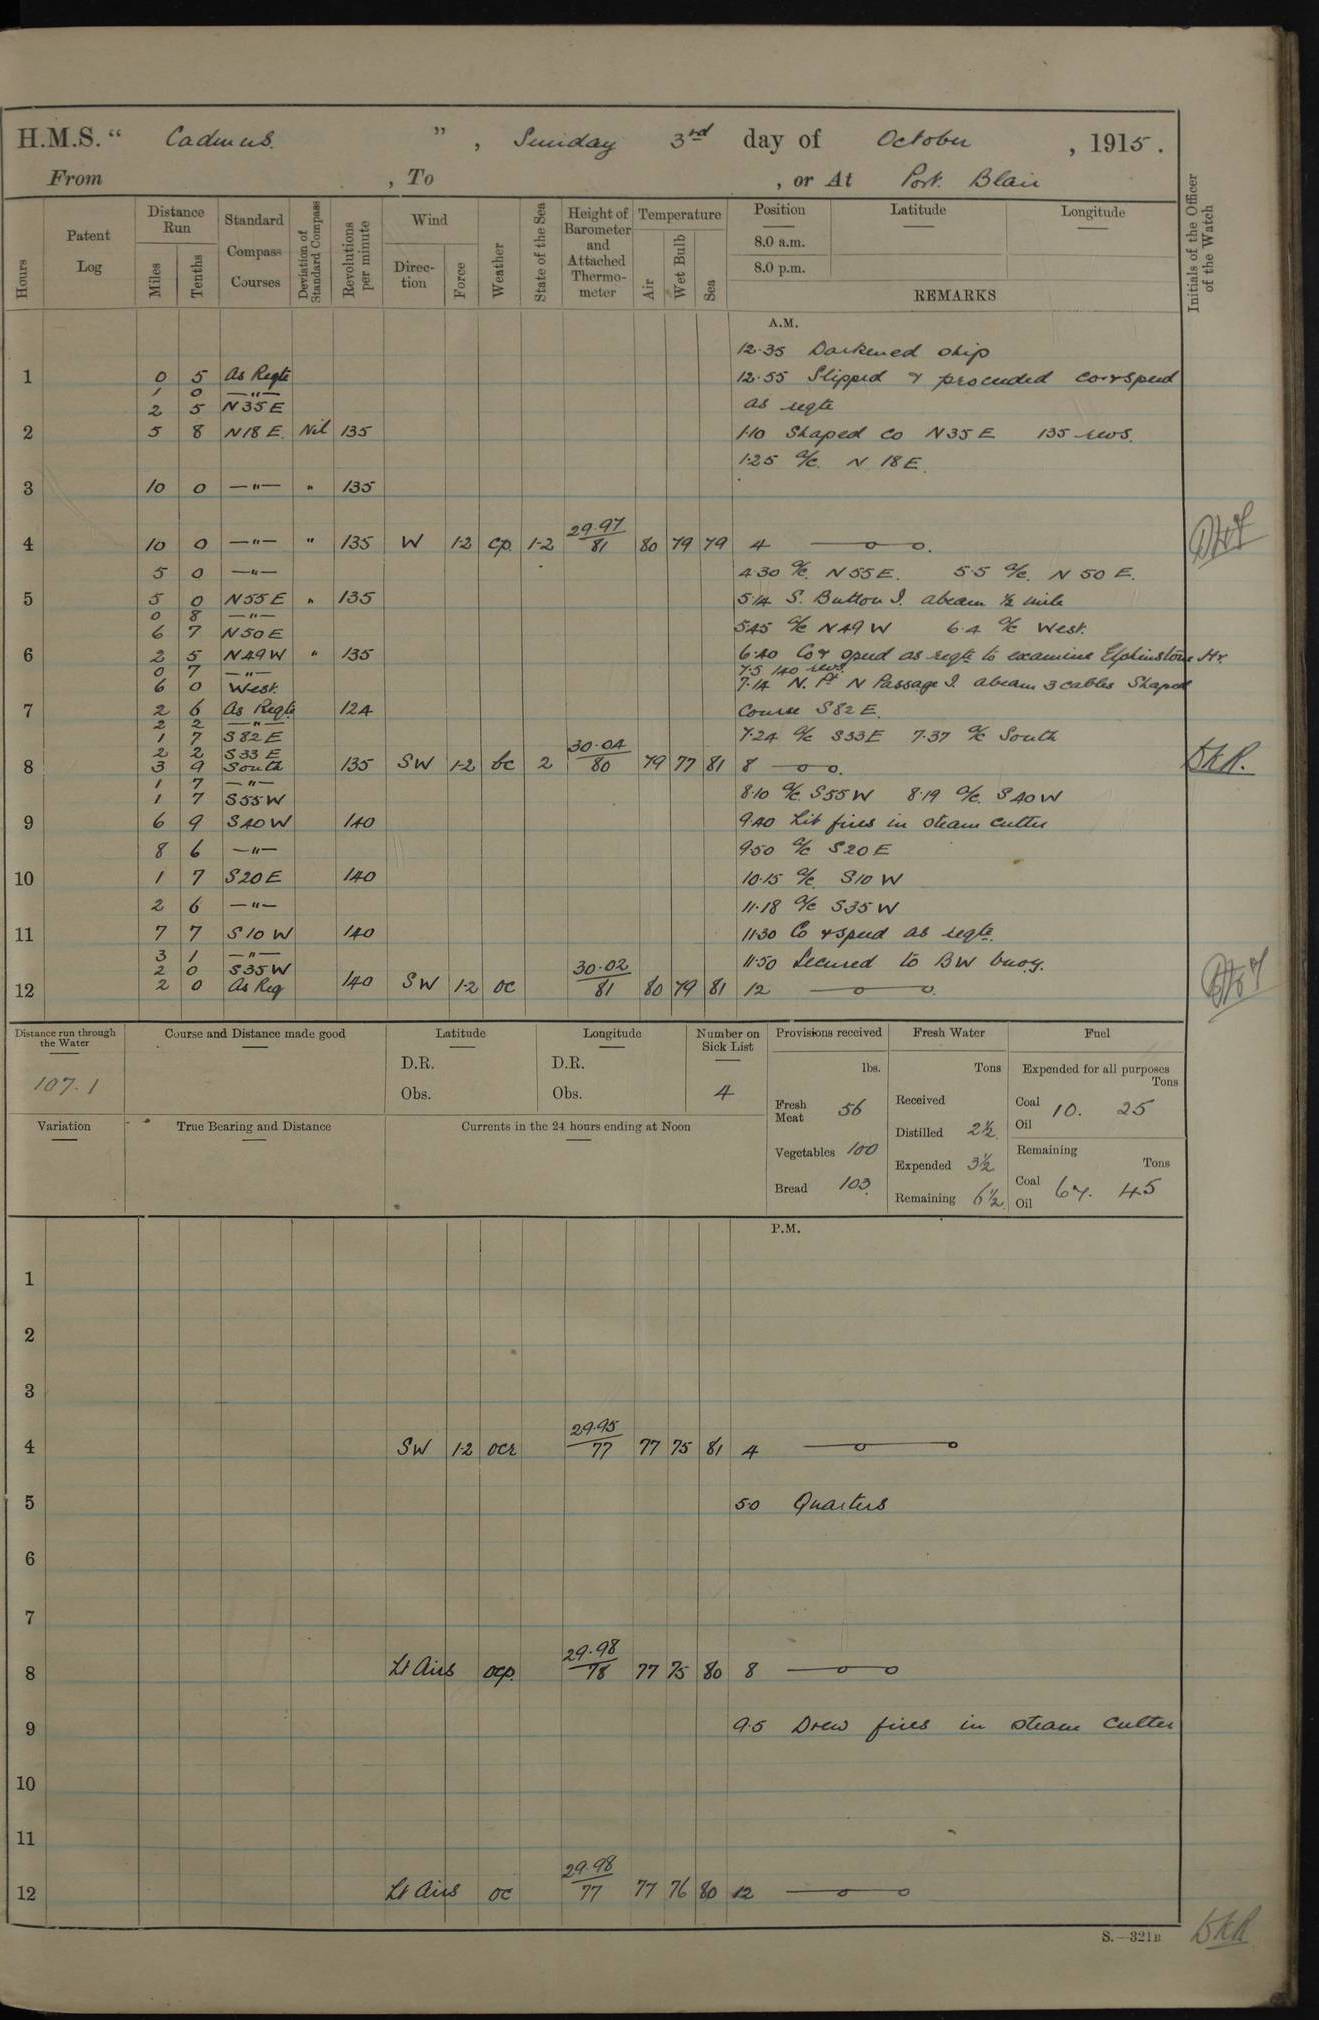 H.M.S. “ Cadmus. ” , Sunday 3rd day of October , 1915.
From , To , or At Port Blair
Hours
Patent Log
Distance Run
Miles
Tenths
Standard Compass Courses
Deviation of Standard Compass
Revolutions per minute
Wind
Direction
Force
Weather
State of the Sea
Height of Barometer and Attached Thermometer
Temperature
Air
Wet Bulb
Sea
Position
8.0 a.m.
8.0 p.m.
Latitude
Longitude
REMARKS
Initials of the Officer of the Watch
A.M.
12.35 Darkened ship
1 0 5 As Reqte 12.55 Slipped & proceeded co & speed
1 0 —"—
2 5 N35E as reqte
2 5 8 N18E. Nil 135 1.10 Shaped co N35E 135 revs.
1.25 a/c. N 18E.
3 10 0 —"— " 135
4 10 0 —"— " 135 W 1-2 cp. 1-2 29.97/81 80 79 79 4 —o—o.
5 0 —"— 4.30 a/c. N55E. 5.5 a/c. N 50 E.
5 5 0 N55E " 135 5.14 S. Button I. abeam ½ mile
0 8 —"—
6 7 N50E 5.45 a/c N49W 6.4 a/c West.
6 2 5 N49W " 135 6.40 Co & speed as reqte to examine Elphinstone Hr.
0 7 —"— 7.5 140 revs.
6 0 West. 7.14 N. Pt N Passage I. abeam 3 cables Shaped
7 2 6 As Reqte 124 Course S82E.
2 2 —"—
1 7 S82E 7.24 a/c S33E 7.37 a/c South
2 2 S33E
8 3 9 South 135 SW 1-2 bc 2 30.04/80 79 77 81 8 —o—o.
1 7 —"—
1 7 S55W 8.10 a/c. S55W 8.19 a/c. S40W
9 6 9 S40W 140 9.40 Lit fires in steam cutter
8 6 —"— 9.50 a/c S20E
10 1 7 S20E 140 10.15 a/c. S10W
2 6 —"— 11.18 a/c S35W
11 7 7 S10W 140 11.30 Co & speed as reqte.
3 1 —"—
2 0 S35W 11.50 Secured to BW buoy.
12 2 0 As Req 140 SW 1-2 oc 30.02/81 80 79 81 12 —o—o.
Distance run through the Water
107.1
Course and Distance made good
Latitude
D.R.
Obs.
Longitude
D.R.
Obs.
Number on Sick List
4
Variation
True Bearing and Distance
Currents in the 24 hours ending at Noon
Provisions received
lbs.
Fresh Meat 56
Vegetables 100
Bread 103
Fresh Water
Tons
Received
Distilled 2½
Expended 3½
Remaining 6½
Fuel
Expended for all purposes
Tons
Coal 10. 25
Oil
Remaining
Tons
Coal 67. 45
Oil
P.M.
1
2
3
4 SW 1-2 ocr 29.95/77 77 75 81 4 —o—o
5 5.0 Quarters
6
7
8 Lt Airs ocp. 29.98/78 77 75 80 8 —o—o
9 9.5 Drew fires in steam cutter
10
11
12 Lt Airs oc 29.98/77 77 76 80 12 —o—o
S.—321B